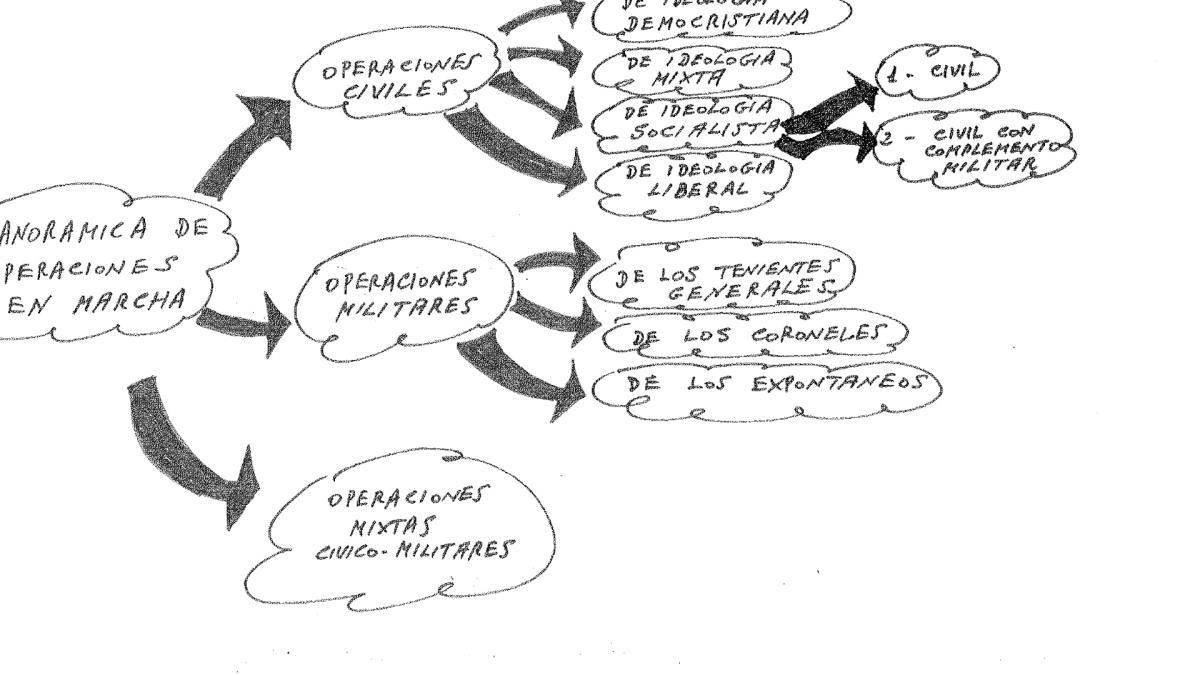 DEMOCRISTIANA
OPERACIONES
CIVILES
DE IDEOLOGIA
MIXTA
DE IDEOLOGIA
SOCIALISTA
DE IDEOLOGIA
LIBERAL
1 - CIVIL
2 - CIVIL CON
COMPLEMENTO
MILITAR
ANORAMICA DE
PERACIONES
EN MARCHA
OPERACIONES
MILITARES
DE LOS TENIENTES
GENERALES
DE LOS CORONELES
DE LOS EXPONTANEOS
OPERACIONES
MIXTAS
CIVICO-MILITARES